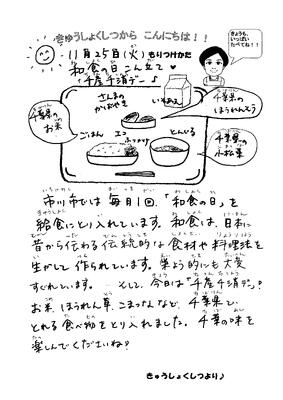 きゅうしょくしつから こんにちは！！
きょうも、
いっぱい
たべてね！！
11月25日(火)もりつけかた
和食の日こんだて♥
千産千消デー♪
さんまの
かばやき
千葉県の
ほうれんそう
千葉県の
お米
ごはん
とんじる
千葉県の
小松菜
市川市では毎月1回、「和食の日」を
給食にとり入れています。和食は、日本に
昔から伝わる伝統的な食材や料理法を
生かして作られています。栄よう的にも大変
すぐれています。 そして、今日は「千産千消デー」♪
お米、ほうれん草、こまつななど、千葉県で
とれる食べ物をとり入れました。千葉の味を
楽しんでくださいね？
きゅうしょくしつより♪